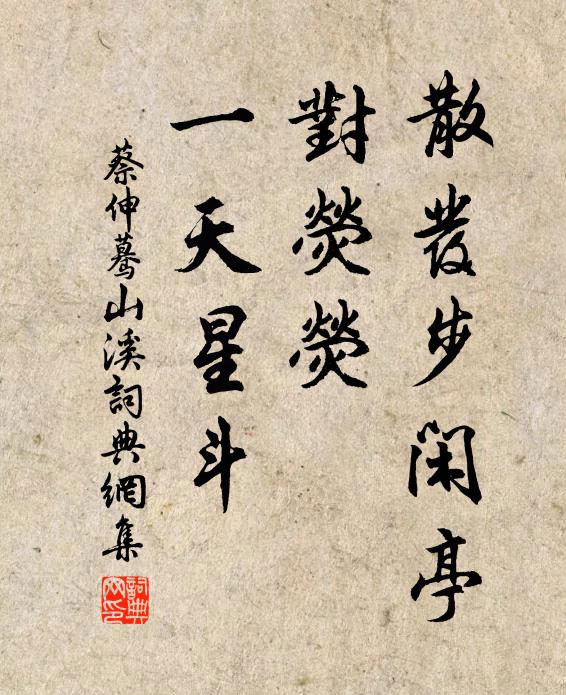 散發步闲亭
對熒熒
一天星斗
蔡伸蓦山溪詞典網集
詞典网印